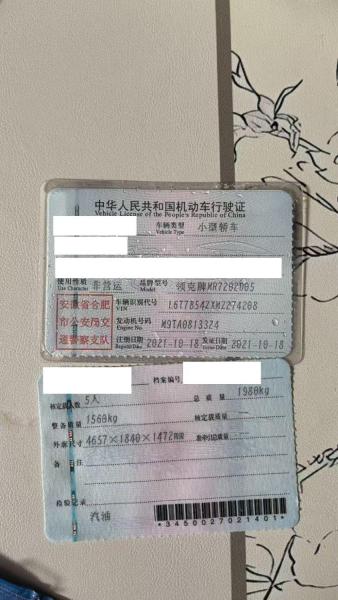 中华人民共和国机动车行驶证
Vehicle License of the People's Republic of China
车辆类型 小型轿车
Vehicle Type
使用性质 非营运 品牌型号 领克牌MR7202D05
Use Character Model
安徽省合肥
市公安局交
通警察支队
车辆识别代号 L6T7854ZXMZ274208
VIN
发动机号码 M9TA0813324
Engine No.
注册日期 2021-10-18 发证日期 2021-10-18
Register Date Issue Date
档案编号
核定载人数 5人 总质量 1980kg
整备质量 1560kg 核定载质量
外廓尺寸 4657×1840×1472mm 准牵引总质量
备注
检验记录
汽油
*3450027021401*